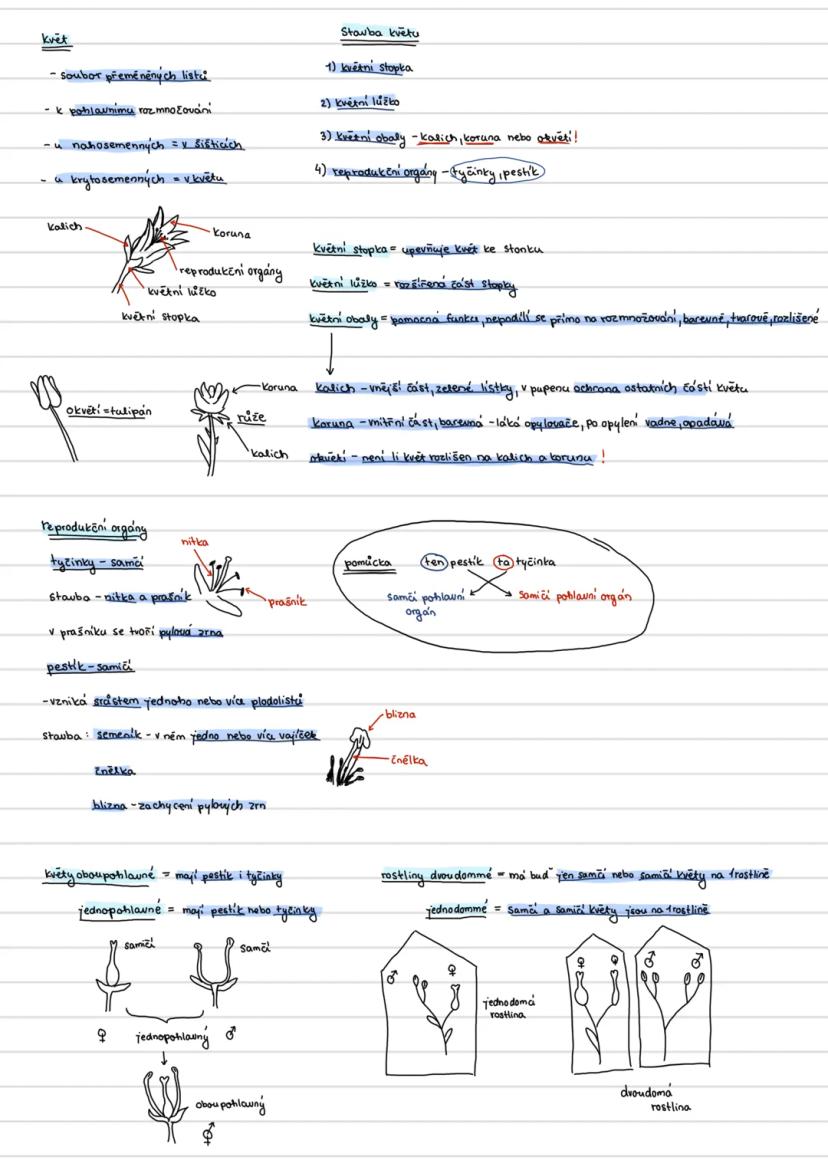 květ
- soubor přeměněných listů
- k pohlavnímu rozmnožování
- u nahosemenných = v šišticích
- u krytosemenných = v květu
Stavba květu
1) květní stopka
2) květní lůžko
3) květní obaly - kalich, koruna nebo okvětí!
4) reprodukční orgány - tyčinky, pestík
kalich
koruna
reprodukční orgány
květní lůžko
květní stopka
květní stopka = upevňuje květ ke stonku
květní lůžko = rozšířená část stopky
květní obaly = pomocná funkce, nepodílí se přímo na rozmnožování, barevně, tvarově, rozlišené
okvětí = tulipán
koruna
růže
kalich
kalich - vnější část, zelené lístky, v pupenu ochrana ostatních částí květu
koruna - vnitřní část, barevná - láká opylovače, po opylení vadne, opadává
okvětí - není li květ rozlišen na kalich a korunu !
reprodukční orgány
tyčinky - samčí
stavba - nitka a prašník
v prašníku se tvoří pylová zrna
nitka
prašník
pomůcka
ten pestík
ta tyčinka
samčí pohlavní
orgán
samičí pohlavní orgán
pestík - samičí
- vzniká srůstem jednoho nebo více plodolistů
stavba : semeník - v něm jedno nebo víc vajíček
čnělka
blizna - zachycení pylových zrn
blizna
čnělka
květy oboupohlavné = mají pestík i tyčinky
jednopohlavné = mají pestík nebo tyčinky
samičí
samčí
♀ jednopohlavný ♂
oboupohlavný
⚥
rostliny dvoudommé = má buď jen samčí nebo samičí květy na 1 rostlině
jednodommé = samčí a samičí květy jsou na 1 rostlině
♂ ♀
jednodomá
rostlina
♀ ♀ ♂ ♂
dvoudomá
rostlina